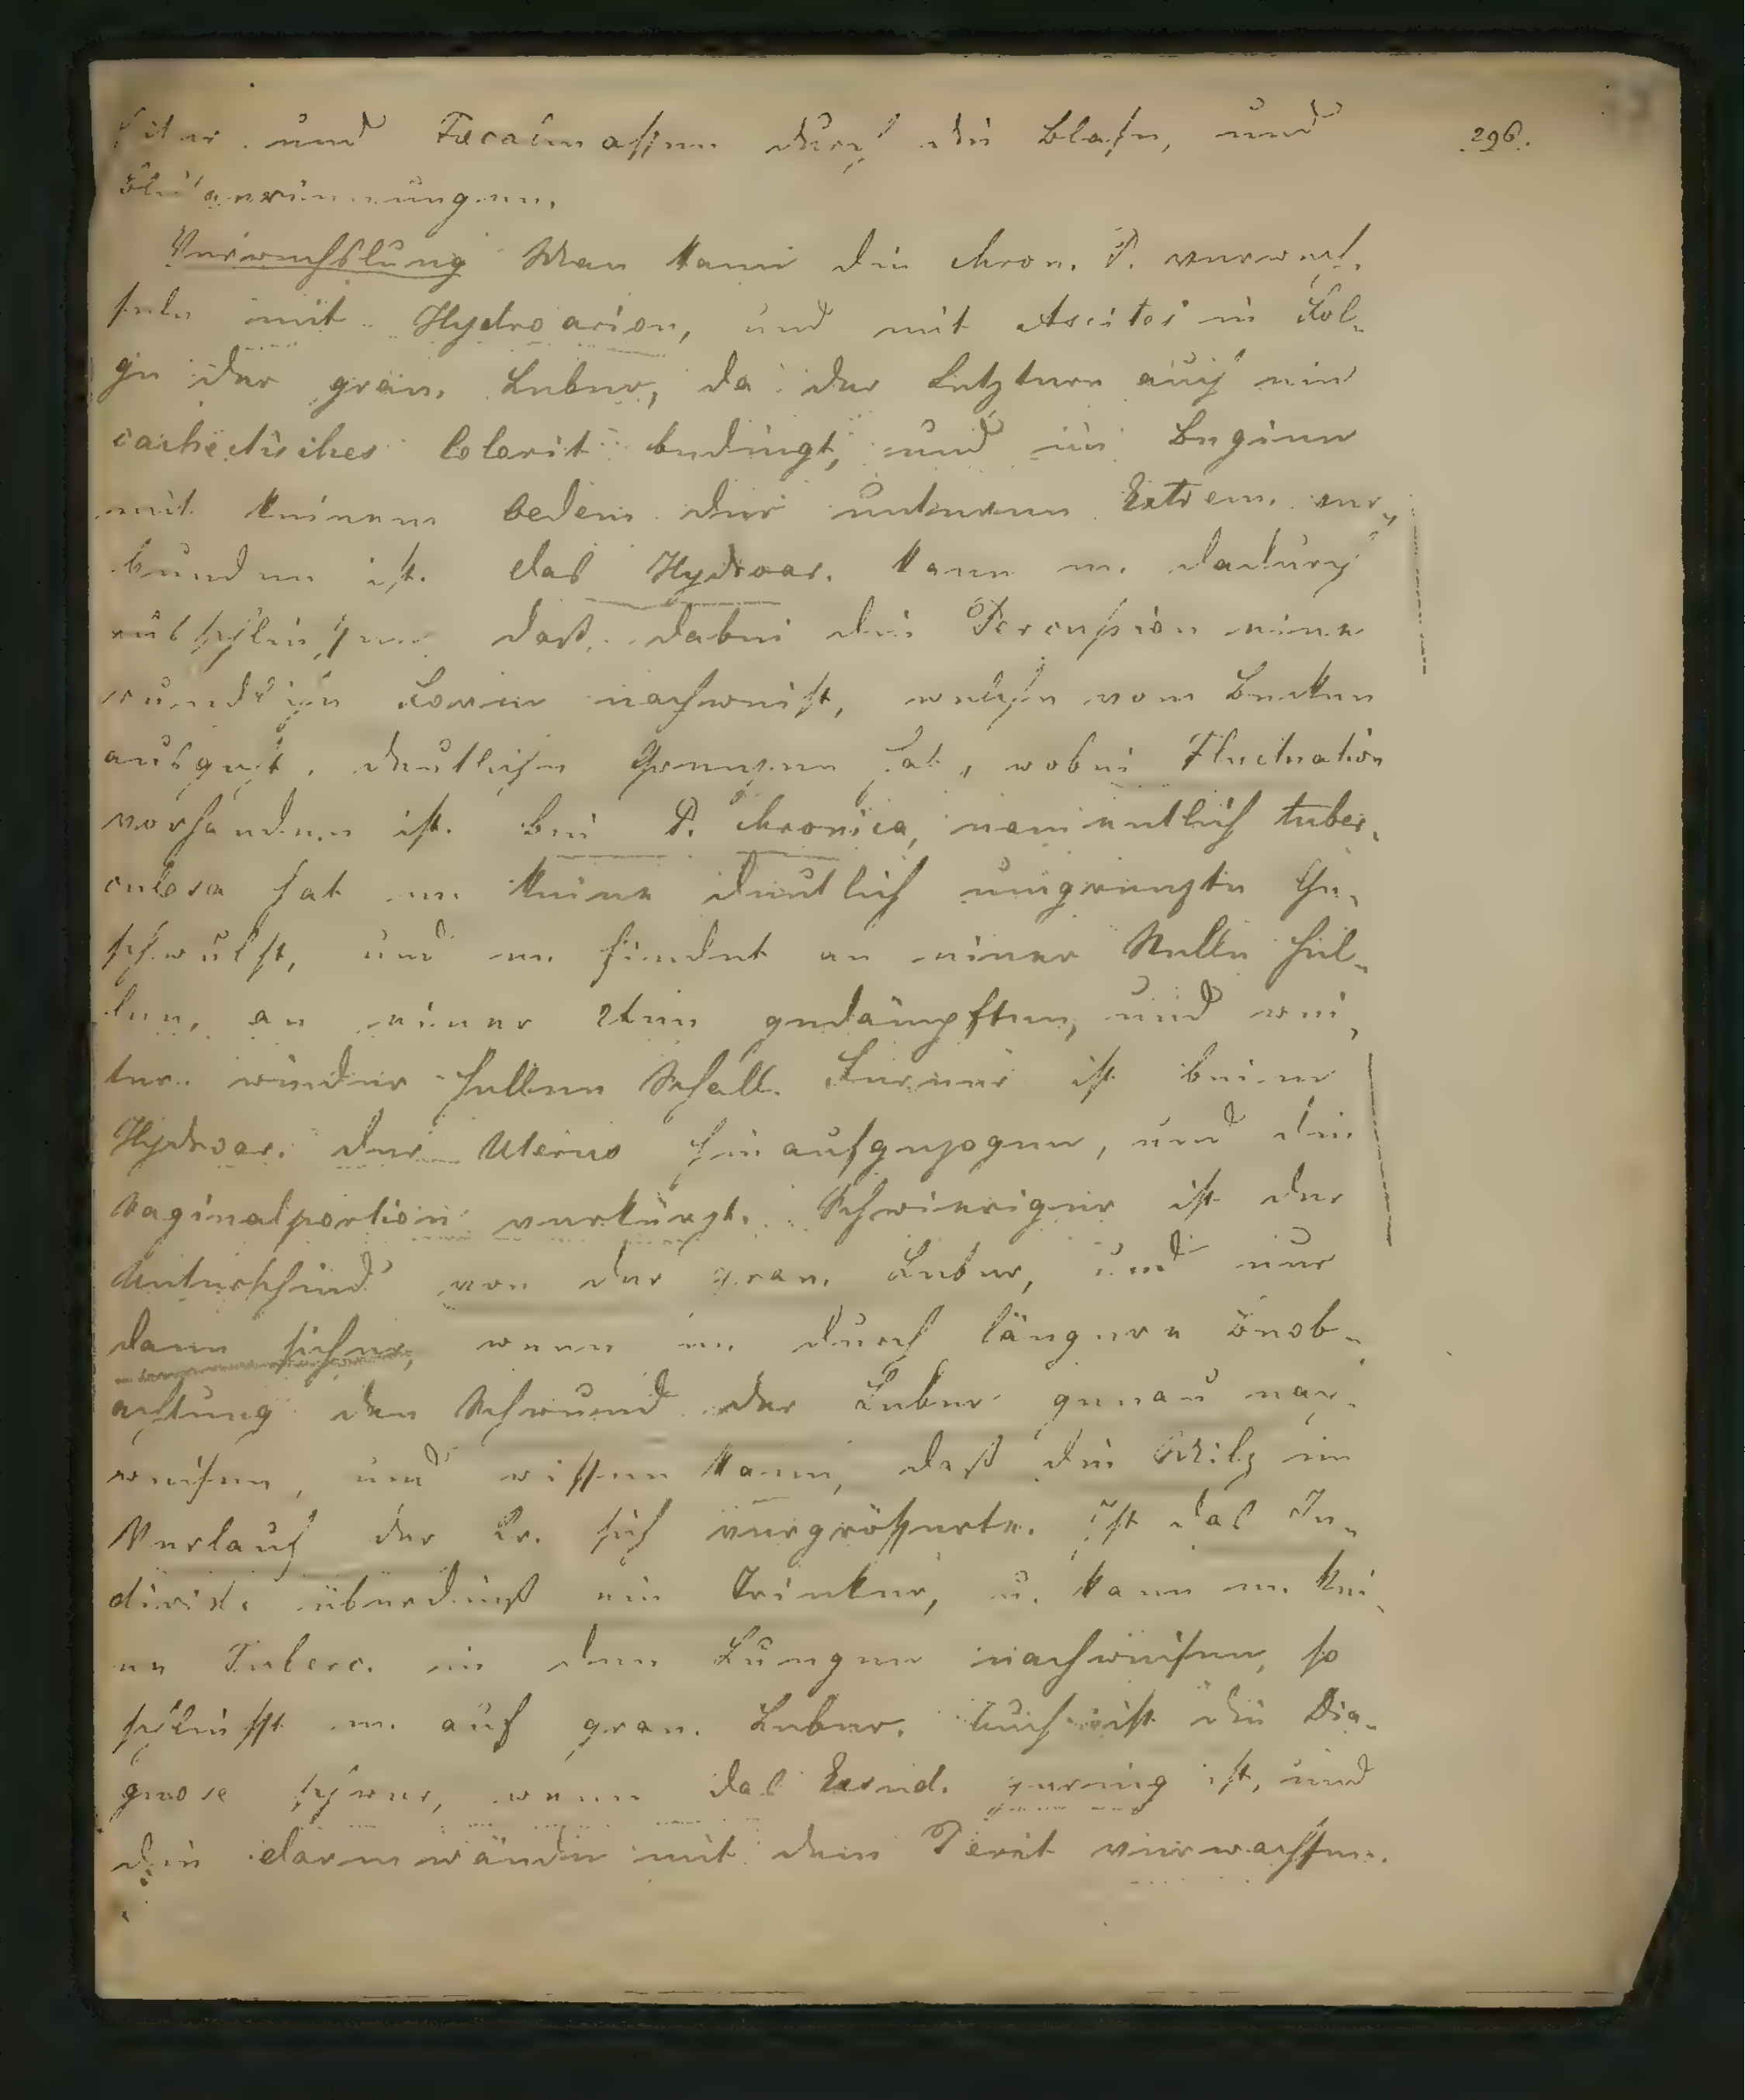 Eiter und Faecalmassen durch die Blase, und
296.
Blutgerinnungen.
Verwechslung Man kann die chron. P. verwech-
seln mit Hydroarion, und mit Ascites in Fol-
ge der gran. Leber, da der Letztere auch ein
cachectisches Colorit bedingt, und im Beginn
mit keinem Oedem der unteren Extrem. ver-
bunden ist. Das Hydroar. kann m. dadurch
ausschließen daß dabei die Percussion eine
rundliche Form nachweist, welche vom Becken
ausgeht, deutliche Grenzen hat, wobei Fluctuation
vorhanden ist. Bei P. chronica, namentlich tuber-
culosa hat m. keine deutlich umgrenzte Ge-
schwulst, und m. findet an einer Stelle hel-
len, an einer 2ten gedämpften, und wei-
ter wieder hellen Schall. Ferner ist beim
Hydroar. der Uterus hinaufgezogen, und die
Vaginalportion verkürzt. Schwieriger ist der
Unterschied von der gran. Leber, und nur
dann sicher, wenn m. durch längere Beob-
achtung den Schwund der Leber genau nach-
weisen, und wissen kann, daß die Milz im
Verlauf der Kr. sich vergrößerte. Ist das In-
divid. überdieß ein Trinker, u. kann m. kei-
ne Tuberc. in den Lungen nachweisen, so
schließt m. auf gran. Leber. Auch ist die Dia-
gnose schwer, wenn das Exsud. gering ist, und
die Darmwände mit dem Perit verwachsen.